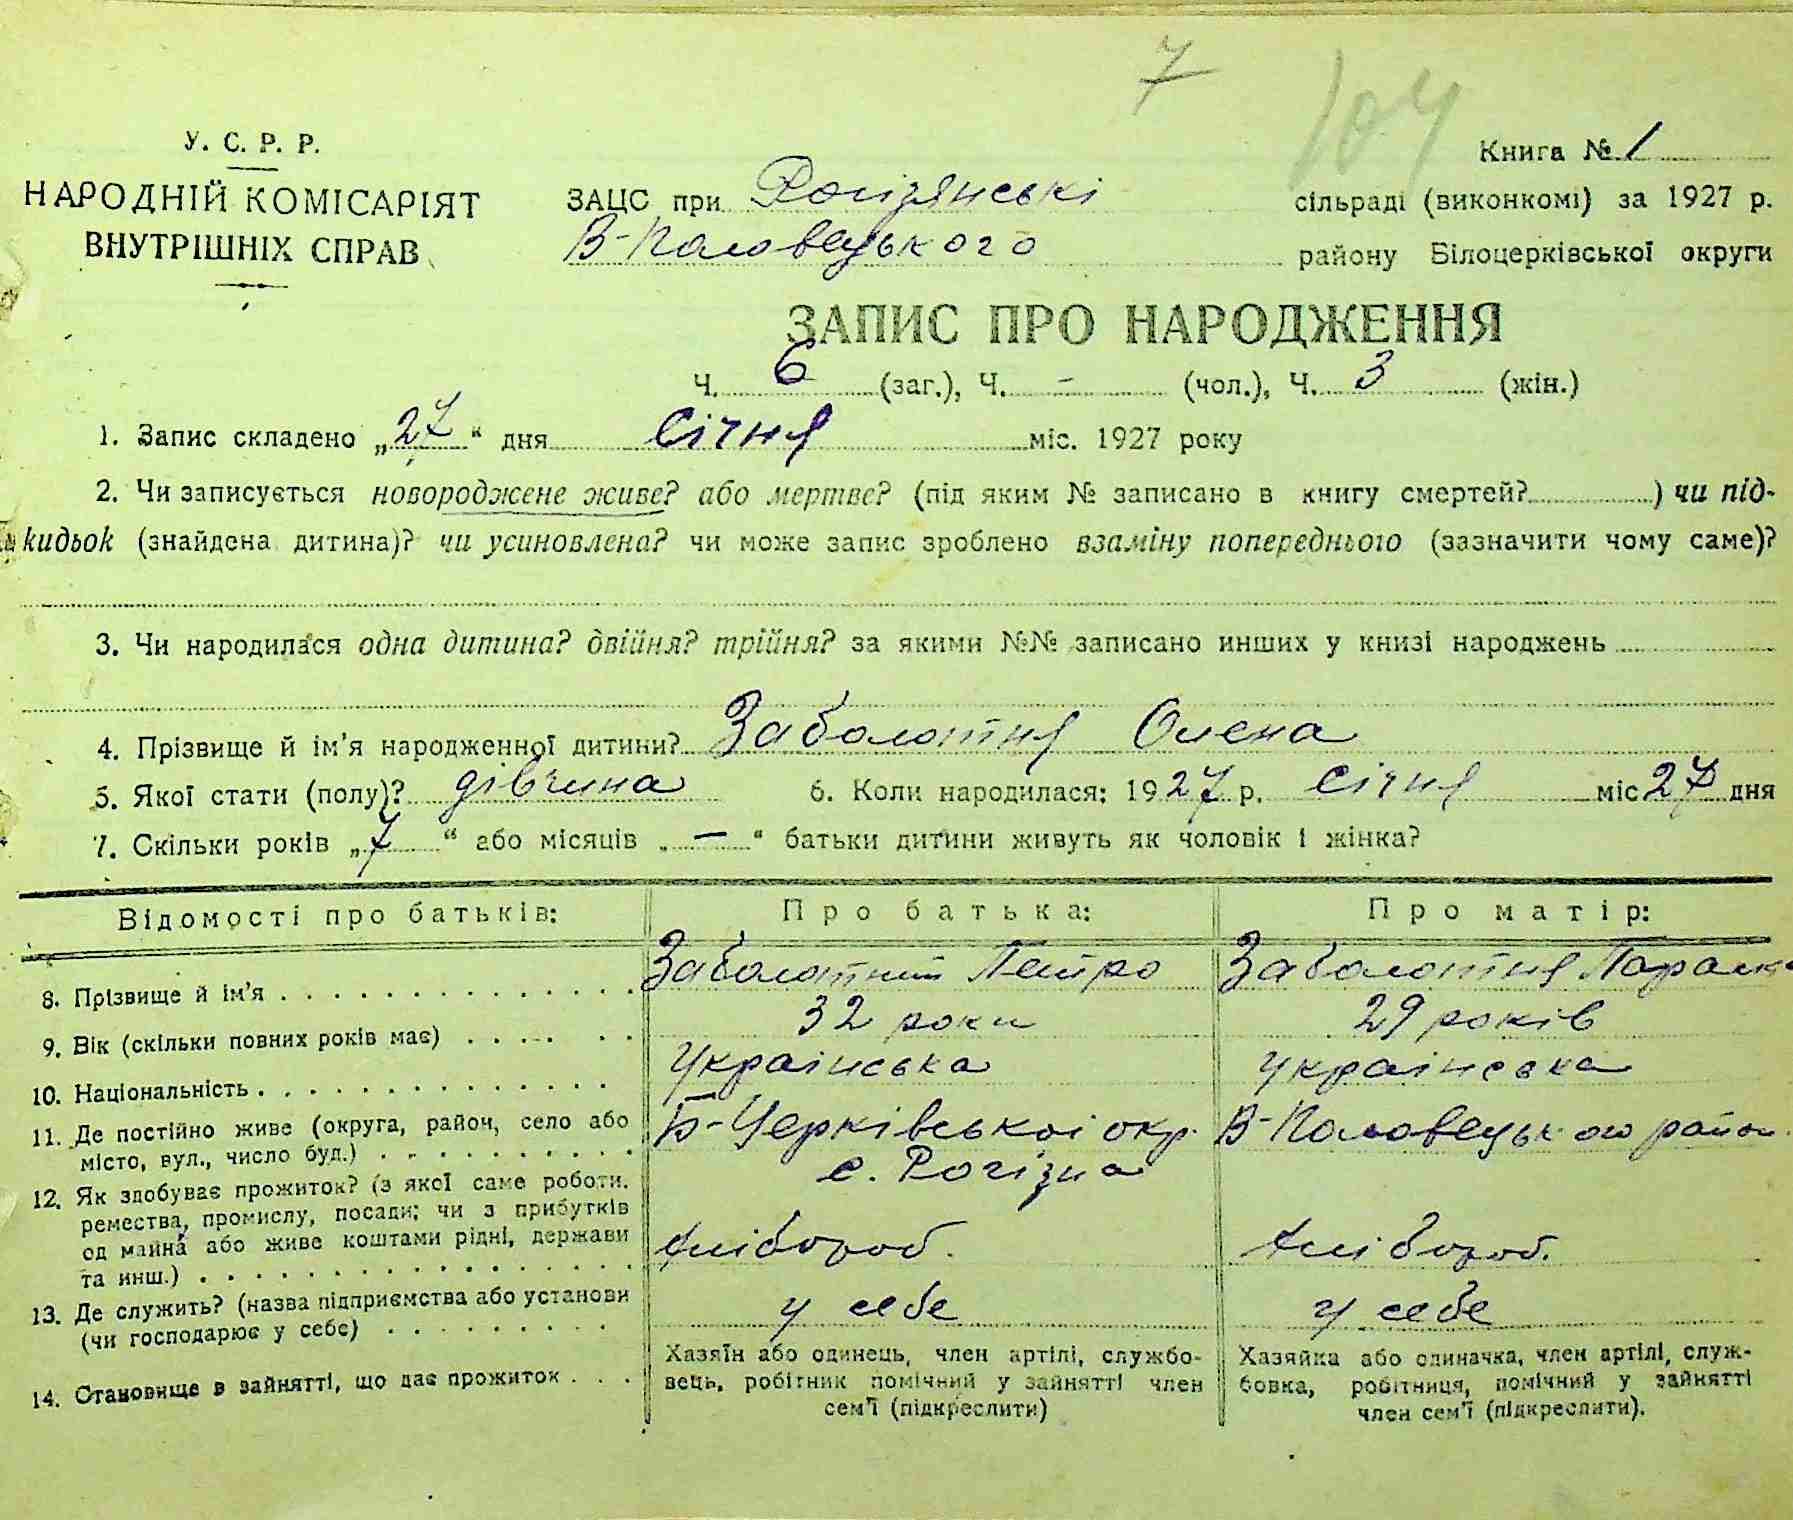 7
104
У. С. Р. Р.
Книга № 1
НАРОДНІЙ КОМІСАРІЯТ
ВНУТРІШНІХ СПРАВ
ЗАЦС при Рогізянські сільраді (виконкомі) за 1927 р.
В-Половецького району Білоцерківської округи
ЗАПИС ПРО НАРОДЖЕННЯ
Ч. 6 (заг.), Ч. - (чол.), Ч. 3 (жін.)
1. Запис складено „27“ дня січня міс. 1927 року
2. Чи записується новороджене живе? або мертве? (під яким № записано в книгу смертей?) чи під-
кидьок (знайдена дитина)? чи усиновлена? чи може запис зроблено взаміну попереднього (зазначити чому саме)?
3. Чи народилася одна дитина? двійня? трійня? за якими №№ записано инших у книзі народжень
4. Прізвище й ім'я народженної дитини? Заболотня Олена
5. Якої стати (полу)? дівчина 6. Коли народилася: 1927 р. січня міс 27 дня
7. Скільки років „7“ або місяців „—“ батьки дитини живуть як чоловік і жінка?
Відомості про батьків: Про батька: Про матір:
8. Прізвище й ім'я Заболотний Петро Заболотня Параска
9. Вік (скільки повних років має) 32 роки 29 років
10. Національність українська українська
11. Де постійно живе (округа, район, село або
місто, вул., число буд.) Б-Церківської окр. В-Половецького район.
с. Рогізна
12. Як здобуває прожиток? (з якої саме роботи,
ремества, промислу, посади; чи з прибутків
од майна або живе коштами рідні, держави
та инш.) хлібороб. хлібороб.
13. Де служить? (назва підприємства або установи
(чи господарює у себе) у себе у себе
14. Становище в зайнятті, що дає прожиток
Хазяїн або одинець, член артілі, службо-
вець, робітник помічний у зайнятті член
сем'ї (підкреслити)
Хазяйка або одиначка, член артілі, служ-
бовка, робітниця, помічний у зайнятті
член сем'ї (підкреслити).